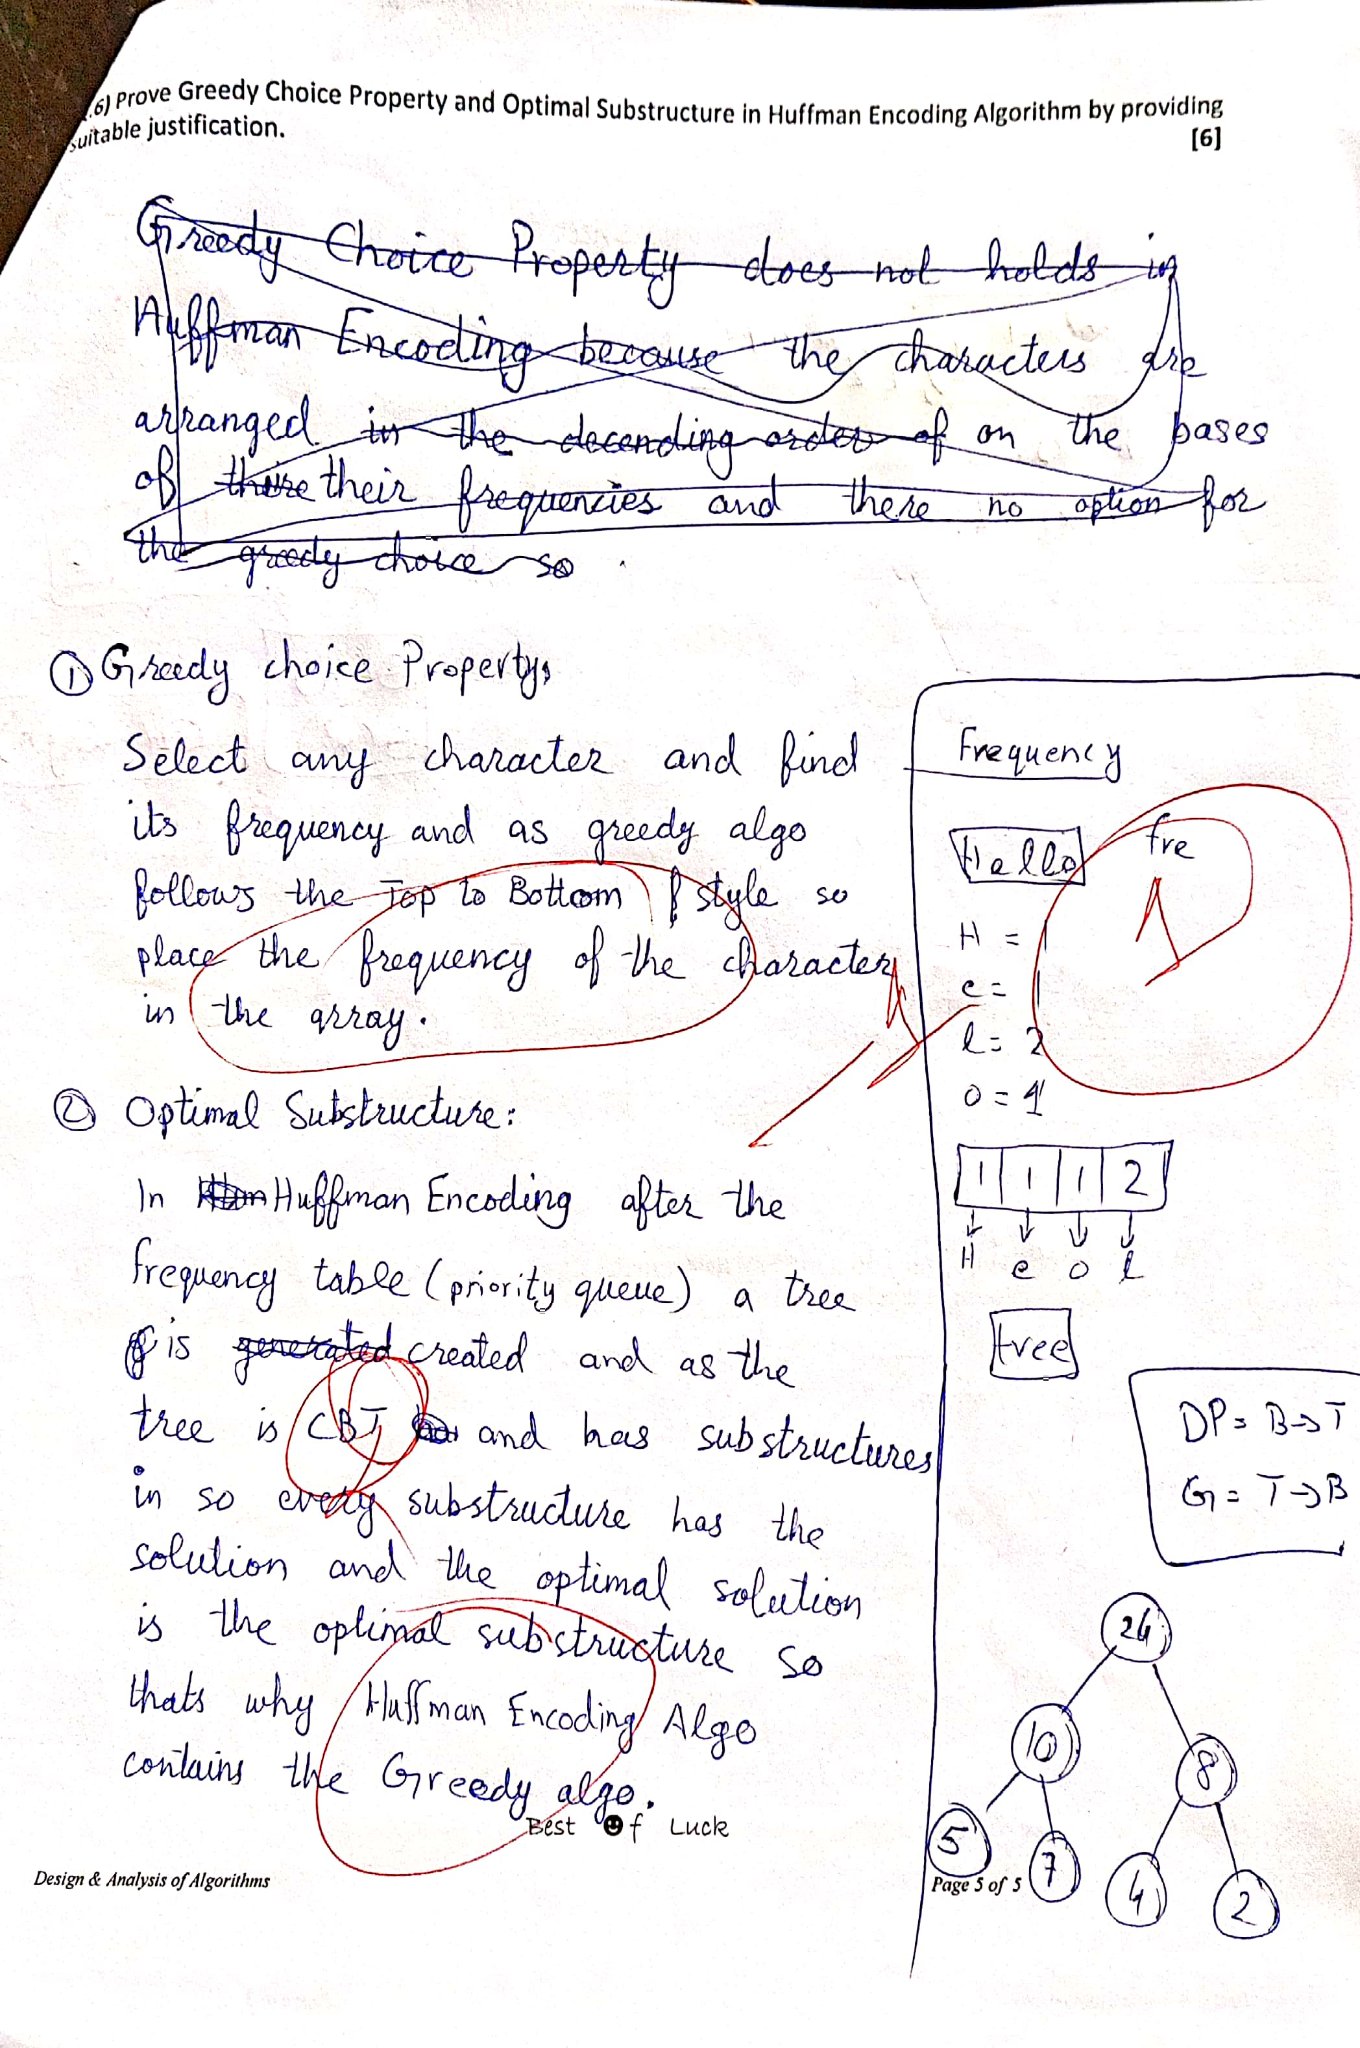 .6) Prove Greedy Choice Property and Optimal Substructure in Huffman Encoding Algorithm by providing
suitable justification.
[6]
Greedy Choice Property does not holds in
Huffman Encoding because the characters are
arranged in the decending order of on the bases
of there their frequencies and there no option for
the greedy choice so
① Greedy choice Property:
Select any character and find
its frequency and as greedy algo
follows the Top to Bottom style so
place the frequency of the character
in the array.
② Optimal Substructure:
In Huffman Encoding after the
frequency table (priority queue) a tree
is generated created and as the
tree is CBT and has substructures
in so every substructure has the
solution and the optimal solution
is the optimal substructure so
thats why Huffman Encoding Algo
contains the Greedy algo.
Frequency
Hello
fre
1
H = 1
e = 1
l = 2
o = 1
1 1 1 2
H e o l
tree
DP = B→T
G = T→B
24
10 8
5 7 4 2
Best Of Luck
Design & Analysis of Algorithms
Page 5 of 5